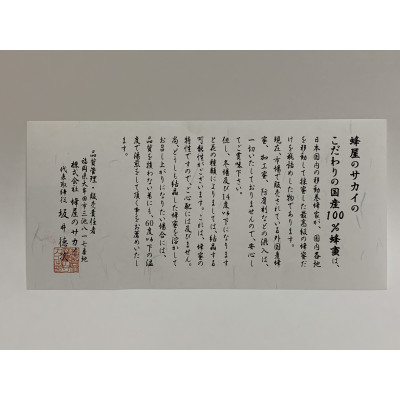 蜂屋のサカイの
こだわりの国産100%蜂蜜は、
日本国内の移動養蜂家が、国内各地
を移動して採蜜した最高級の蜂蜜だ
けを瓶詰めした物であります。
現在、市場で販売されている外国産蜂
蜜、加工蜜、阿膠製などの混入は、
一切いたしておりませんので、安心し
てご賞味下さい。
但し、冬場及び14度以下になります
と花の種類によりましては、結晶する
可能性がございます。これは、蜂蜜の
特性ですので、ご心配には及びません。
尚、どうしても結晶した蜂蜜を溶かして
お召し上がりになりたい場合には、
品質を損わない為にも、60度以下の温
度で湯煎をして頂く事をお薦めいたし
ます。
品質管理・販売責任者
福岡県大牟田市三池八一七番地
株式会社 蜂屋のサカイ
代表取締役 坂井徳